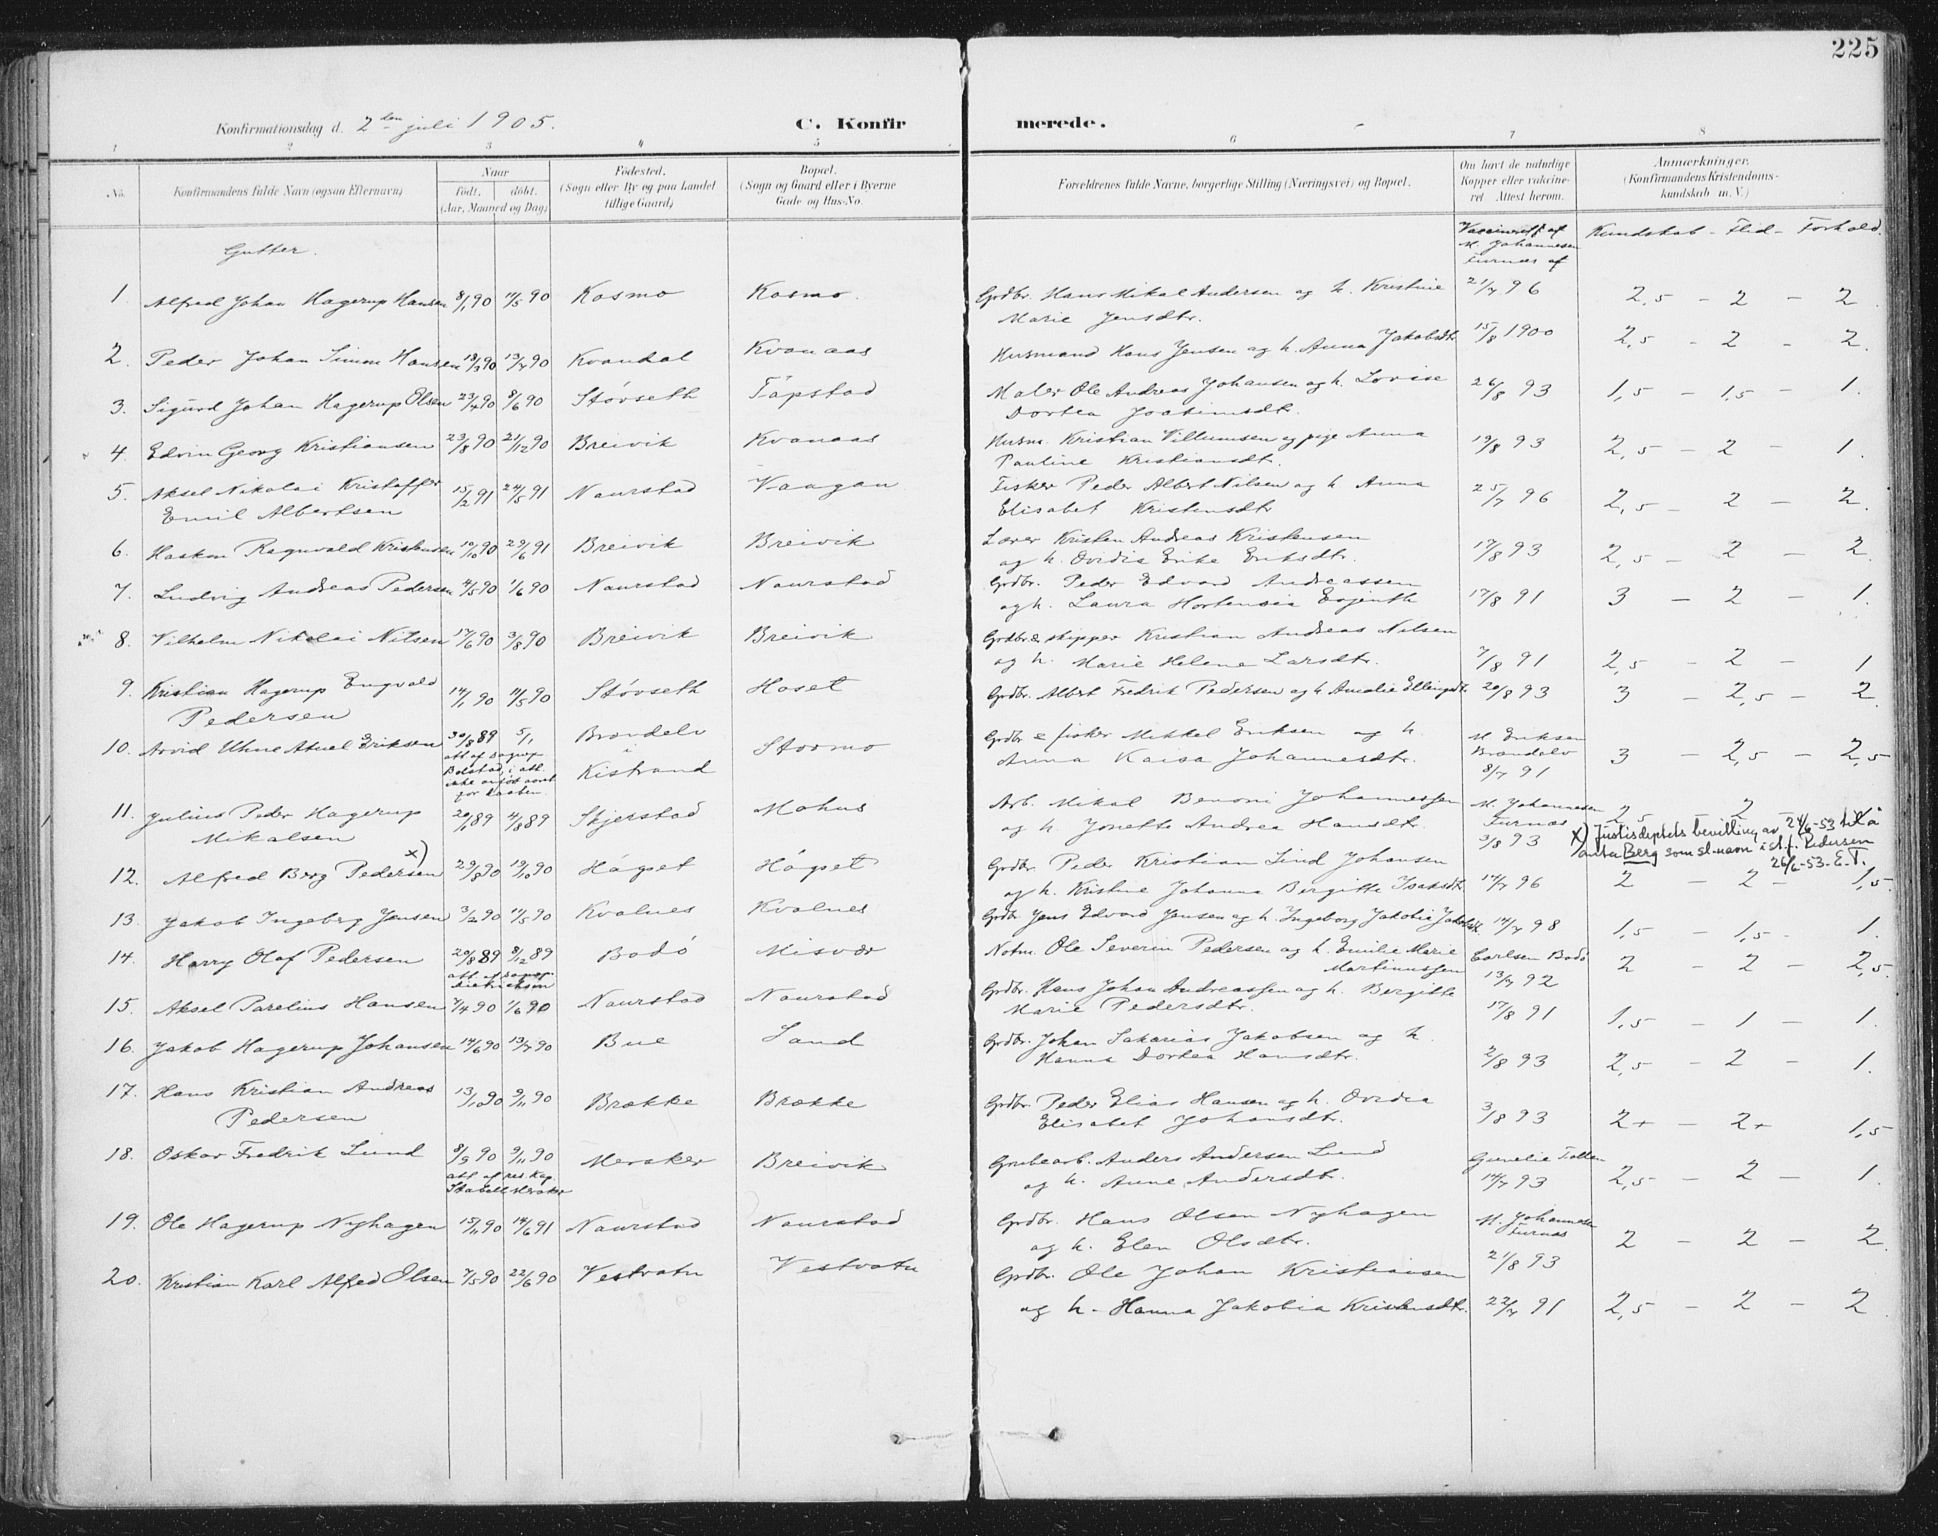 225
Konfirmationsdag d. 2den juli 1905.
C. Konfirmerede.
1 2 3 4 5 6 7 8
No.
Konfirmandens fulde Navn (ogsaa Efternavn)
Naar
født. døbt.
(Aar, Maaned og Dag)
Fødested.
(Sogn eller By og paa Landet
tillige Gaard)
Bopæl.
(Sogn og Gaard eller i Byerne
Gade og Hus-No.
Forældrenes fulde Navne, borgerlige Stilling (Næringsvei) og Bopæl.
Om havt de naturlige
Kopper eller vakcine-
ret. Attest herom.
Anmærkninger.
(Konfirmandens Kristendoms-
kundskab m. V.)
Gutter.
Vaccineret af
M. Johannesen
Furnæs af
Kundskab - Flid - Forhold.
1. Alfred Johan Hagerup Hansen 8/1 90 11/5 90 Kosmo Kosmo. Grdbr. Hans Mikal Andersen og h. Kristine 21/7 96 2,5 - 2 - 2.
Marie Jensdtr.
2. Peder Johan Simon Hansen 18/3 90 13/7 90 Kvandal Kvanaas Husmand Hans Jensen og h. Anna Jakobsdtr. 15/8 1900 2,5 - 2 - 2.
3. Sigurd Johan Hagerup Olsen 23/4 90 8/6 90 Støvseth Tåpstad Maler Ole Andreas Johansen og h. Lovise 26/8 93 1,5 - 1,5 - 1.
Dortea Joakimsdtr.
4. Edvin Georg Kristiansen 23/8 90 21/12 90 Breivik Kvanaas Husm. Kristian Villumsen og pige Anna 19/8 93 2,5 - 2 - 1.
Pauline Kristiansdtr.
5. Aksel Nikolai Kristoffer 15/2 91 24/5 91 Naurstad Vaagan Fisker Peder Albert Nilsen og h. Anna 25/7 96 2,5 - 2 - 2.
Emil Albertsen Elisabet Kristensdtr
6. Haakon Ragnvald Kristensen 10/10 90 29/6 91 Breivik Breivik Lærer Kristen Andreas Kristensen 17/8 93 2,5 - 2 - 2.
og h. Ovidia Erike Eriksdtr.
7. Ludvig Andreas Pedersen 4/5 90 1/6 90 Naurstad Naurstad Grdbr. Peder Edvard Andreassen 17/8 91 3 - 2 - 1.
og h. Laura Hortensia Evjenth
8. Vilhelm Nikolai Nilsen 17/6 90 3/8 90 Breivik Breivik Grdbr. & skipper Kristian Andreas Nilsen
og h. Marie Helene Larsdtr. 7/8 91 2,5 - 2 - 1
9. Kristian Hagerup Engvald 14/1 90 11/5 90 Støvseth Hoset Grdbr. Albert Fredrik Pedersen og h. Amalie Ellingsdtr. 20/8 93 3 - 2,5 - 2
Pedersen
10. Arvid Uhne Atuel Eriksen 30/8 89 5/1 Brændelv i Kistrand Stormo Grdbr & fisker Mikkel Eriksen og h. M. Eriksen
Anna Kaisa Johannesdtr. Brændelv 8/7 91 3 - 2,5 - 2,5
att af sognep.
Bolstad, i att.
ikke anført aaret
for daaben.
11. Julius Peder Hagerup 20/1 89 4/8 89 Skjerstad Mohus Arb. Mikal Benoni Johannessen M. Johannesen 2,5 2
Mikalsen og h. Jonette Andrea Hansdtr. Furnæs 3/8 93
x) Justisdeptets bevilling av 24/6-53 til å
anta Berg som sl.navn i st. f. Pedersen
26/6-53-E.T.
12. Alfred Berg Pedersen x) 29/8 90 19/10 90 Hågset Hågset Grdbr. Peder Kristian Lind Johansen
og h. Kristine Johanna Bergitte Isaksdtr 14/7 96 2 - 2 - 1,5.
13. Jakob Ingeberg Jensen 3/2 90 11/5 90 Kvalnes Kvalnes Grdbr. Jens Edvard Jensen og h. Ingeborg Jakobia Jakobsdtr. 14/7 98 1,5 - 1,5 - 1.
14. Harry Olaf Pedersen 20/8 89 8/12 89 Bodö Misvær Notm. Ole Severin Pedersen og h. Emilie Marie Carlsen Bodö 2 - 2 - 2,5.
att. af sognep. Martinussen 13/7 92
15. Aksel Parelius Hansen 7/4 90 1/6 90 Naurstad Naurstad Grdbr. Hans Johan Andreassen og h. Bergitte
Marie Pedersdtr. 17/8 91 1,5 - 1 - 1.
16. Jakob Hagerup Johansen 14/6 90 13/7 90 Bue Sand Grdbr. Johan Sakarias Jakobsen og h.
Hanna Dortea Hansdtr. 2/8 93 2,5 - 2 - 1.
17. Hans Kristian Andreas 13/10 90 9/11 90 Brække Brække Grdbr. Peder Elias Hansen og h. Ovidia 3/8 93 2+ - 2+ 1,5
Pedersen Elisabet Johansdtr.
18. Oskar Fredrik Lund 8/9 90 9/11 90 Meraker Breivik Grubearb. Anders Andersen Lund Gunelie Tollen
og h. Anne Andersdtr. 14/7 93 2,5 - 2 - 1.
att af res. kap.
Stabell Meraker
19. Ole Hagerup Nyhagen 15/11 90 14/6 91 Naurstad Naurstad Grdbr. Hans Olsen Nyhagen M. Johannesen
og h. Elen Olsdtr. Furnæs 21/8 93 2 - 2 - 2.
20. Kristian Karl Alfred Olsen 7/5 90 22/6 90 Vestvatn Vestvatn Grdbr. Ole Johan Kristiansen
og h. Hanna Jakobia Kristensdtr. 22/7 91 2,5 - 2 - 2